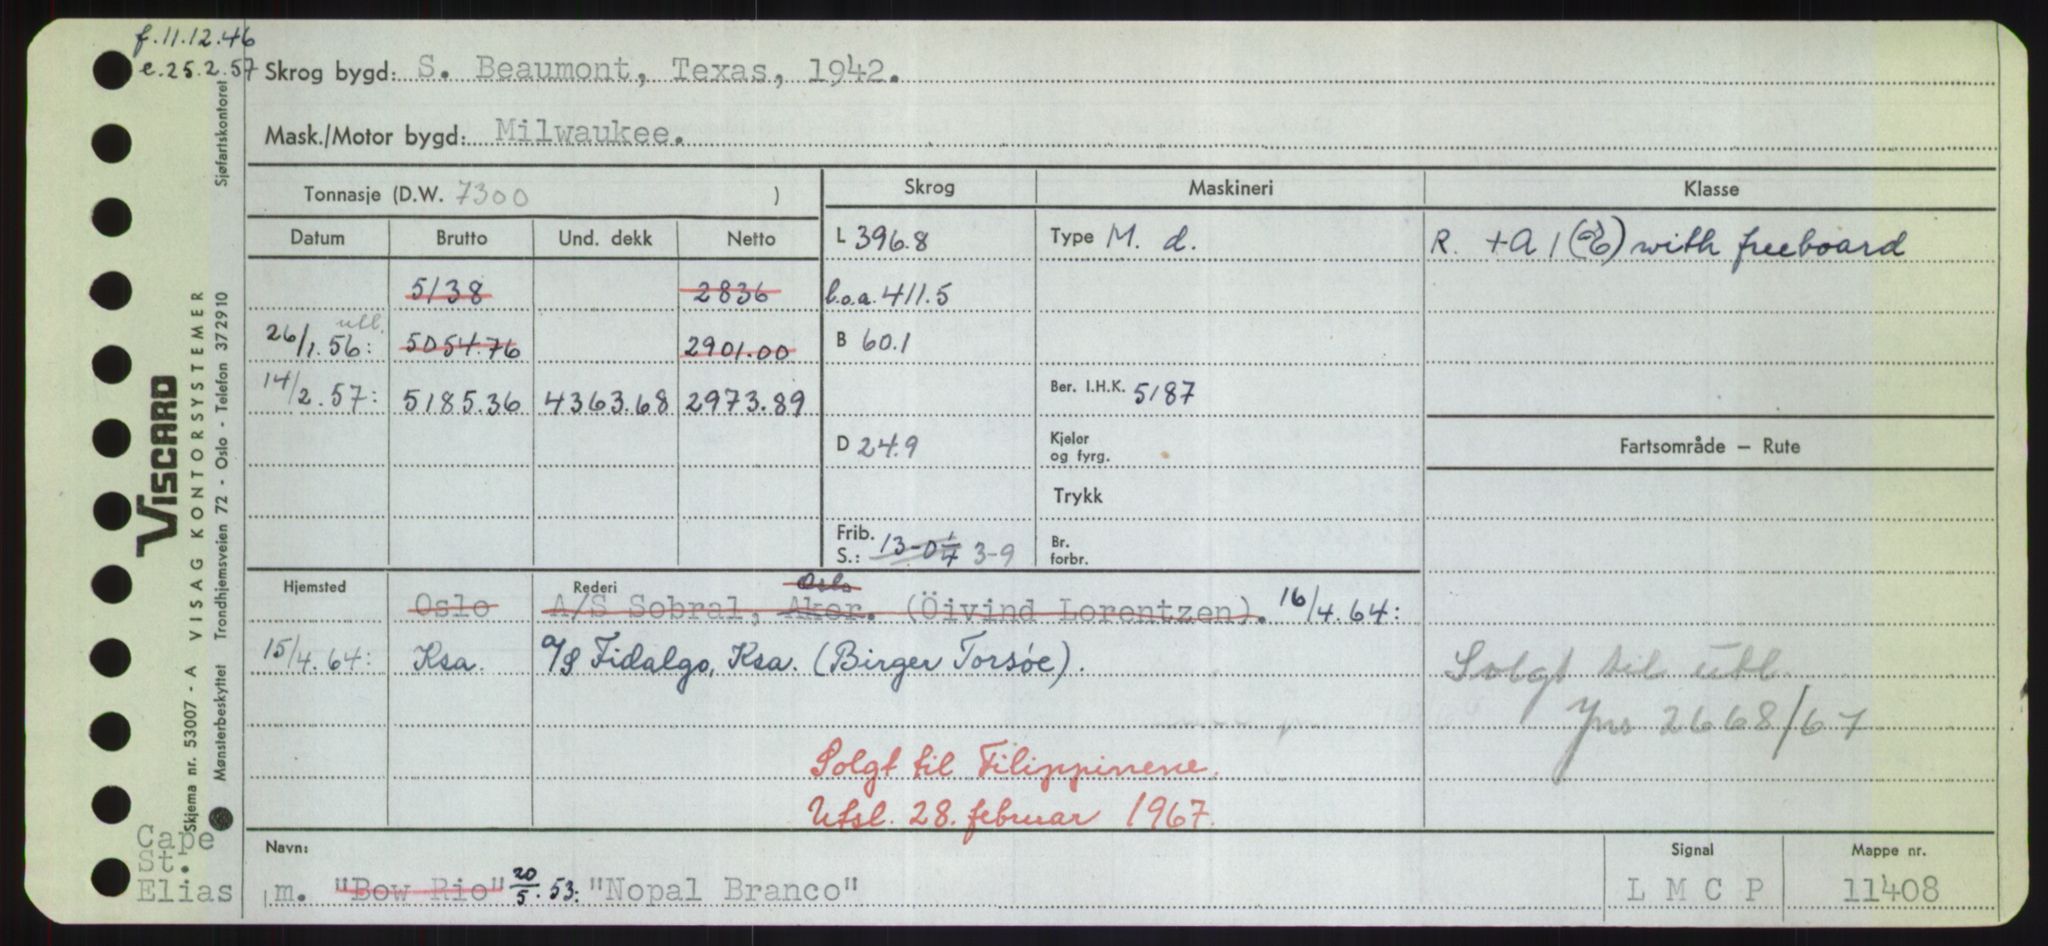 f.11.12.46
e.25.2.57
Skrog bygd: S. Beaumont, Texas, 1942.
Mask./Motor bygd: Milwaukee.
Tonnasje (D.W. 7300 )
Skrog
Maskineri
Klasse
Datum Brutto Und. dekk Netto
L 396.8
Type M. d.
R. +A 1 (E) with freeboard
5138 2836
l.o.a. 411.5
utl.
26/1.56: 5054.76 2901.00
B 60.1
14/2.57: 5185.36 4363.68 2973.89
Ber. I.H.K. 5187
D 24.9
Kjeler og fyrg.
Fartsområde — Rute
Trykk
Frib. S.: 13-0 1/4 3-9
Br. forbr.
Hjemsted
Rederi
Oslo
Oslo A/S Sobral, Aker. (Öivind Lorentzen). 16/4.64:
15/4.64: Ksa. A/S Fidalgo, Ksa. (Birger Torsøe).
Solgt til utl.
Jnr 2668/67
Solgt til Filippinene.
Utsl. 28. februar 1967.
Navn:
m. "Bow Rio" 20/5.53: "Nopal Branco"
Signal
L M C P
Mappe nr.
11408
Cape
St.
Elias
VISCARD
Skjema nr. 53007 - A VISAG KONTORSYSTEMER
Mønsterbeskyttet Trondhjemsveien 72 - Oslo - Telefon 372910 Sjøfartskontoret